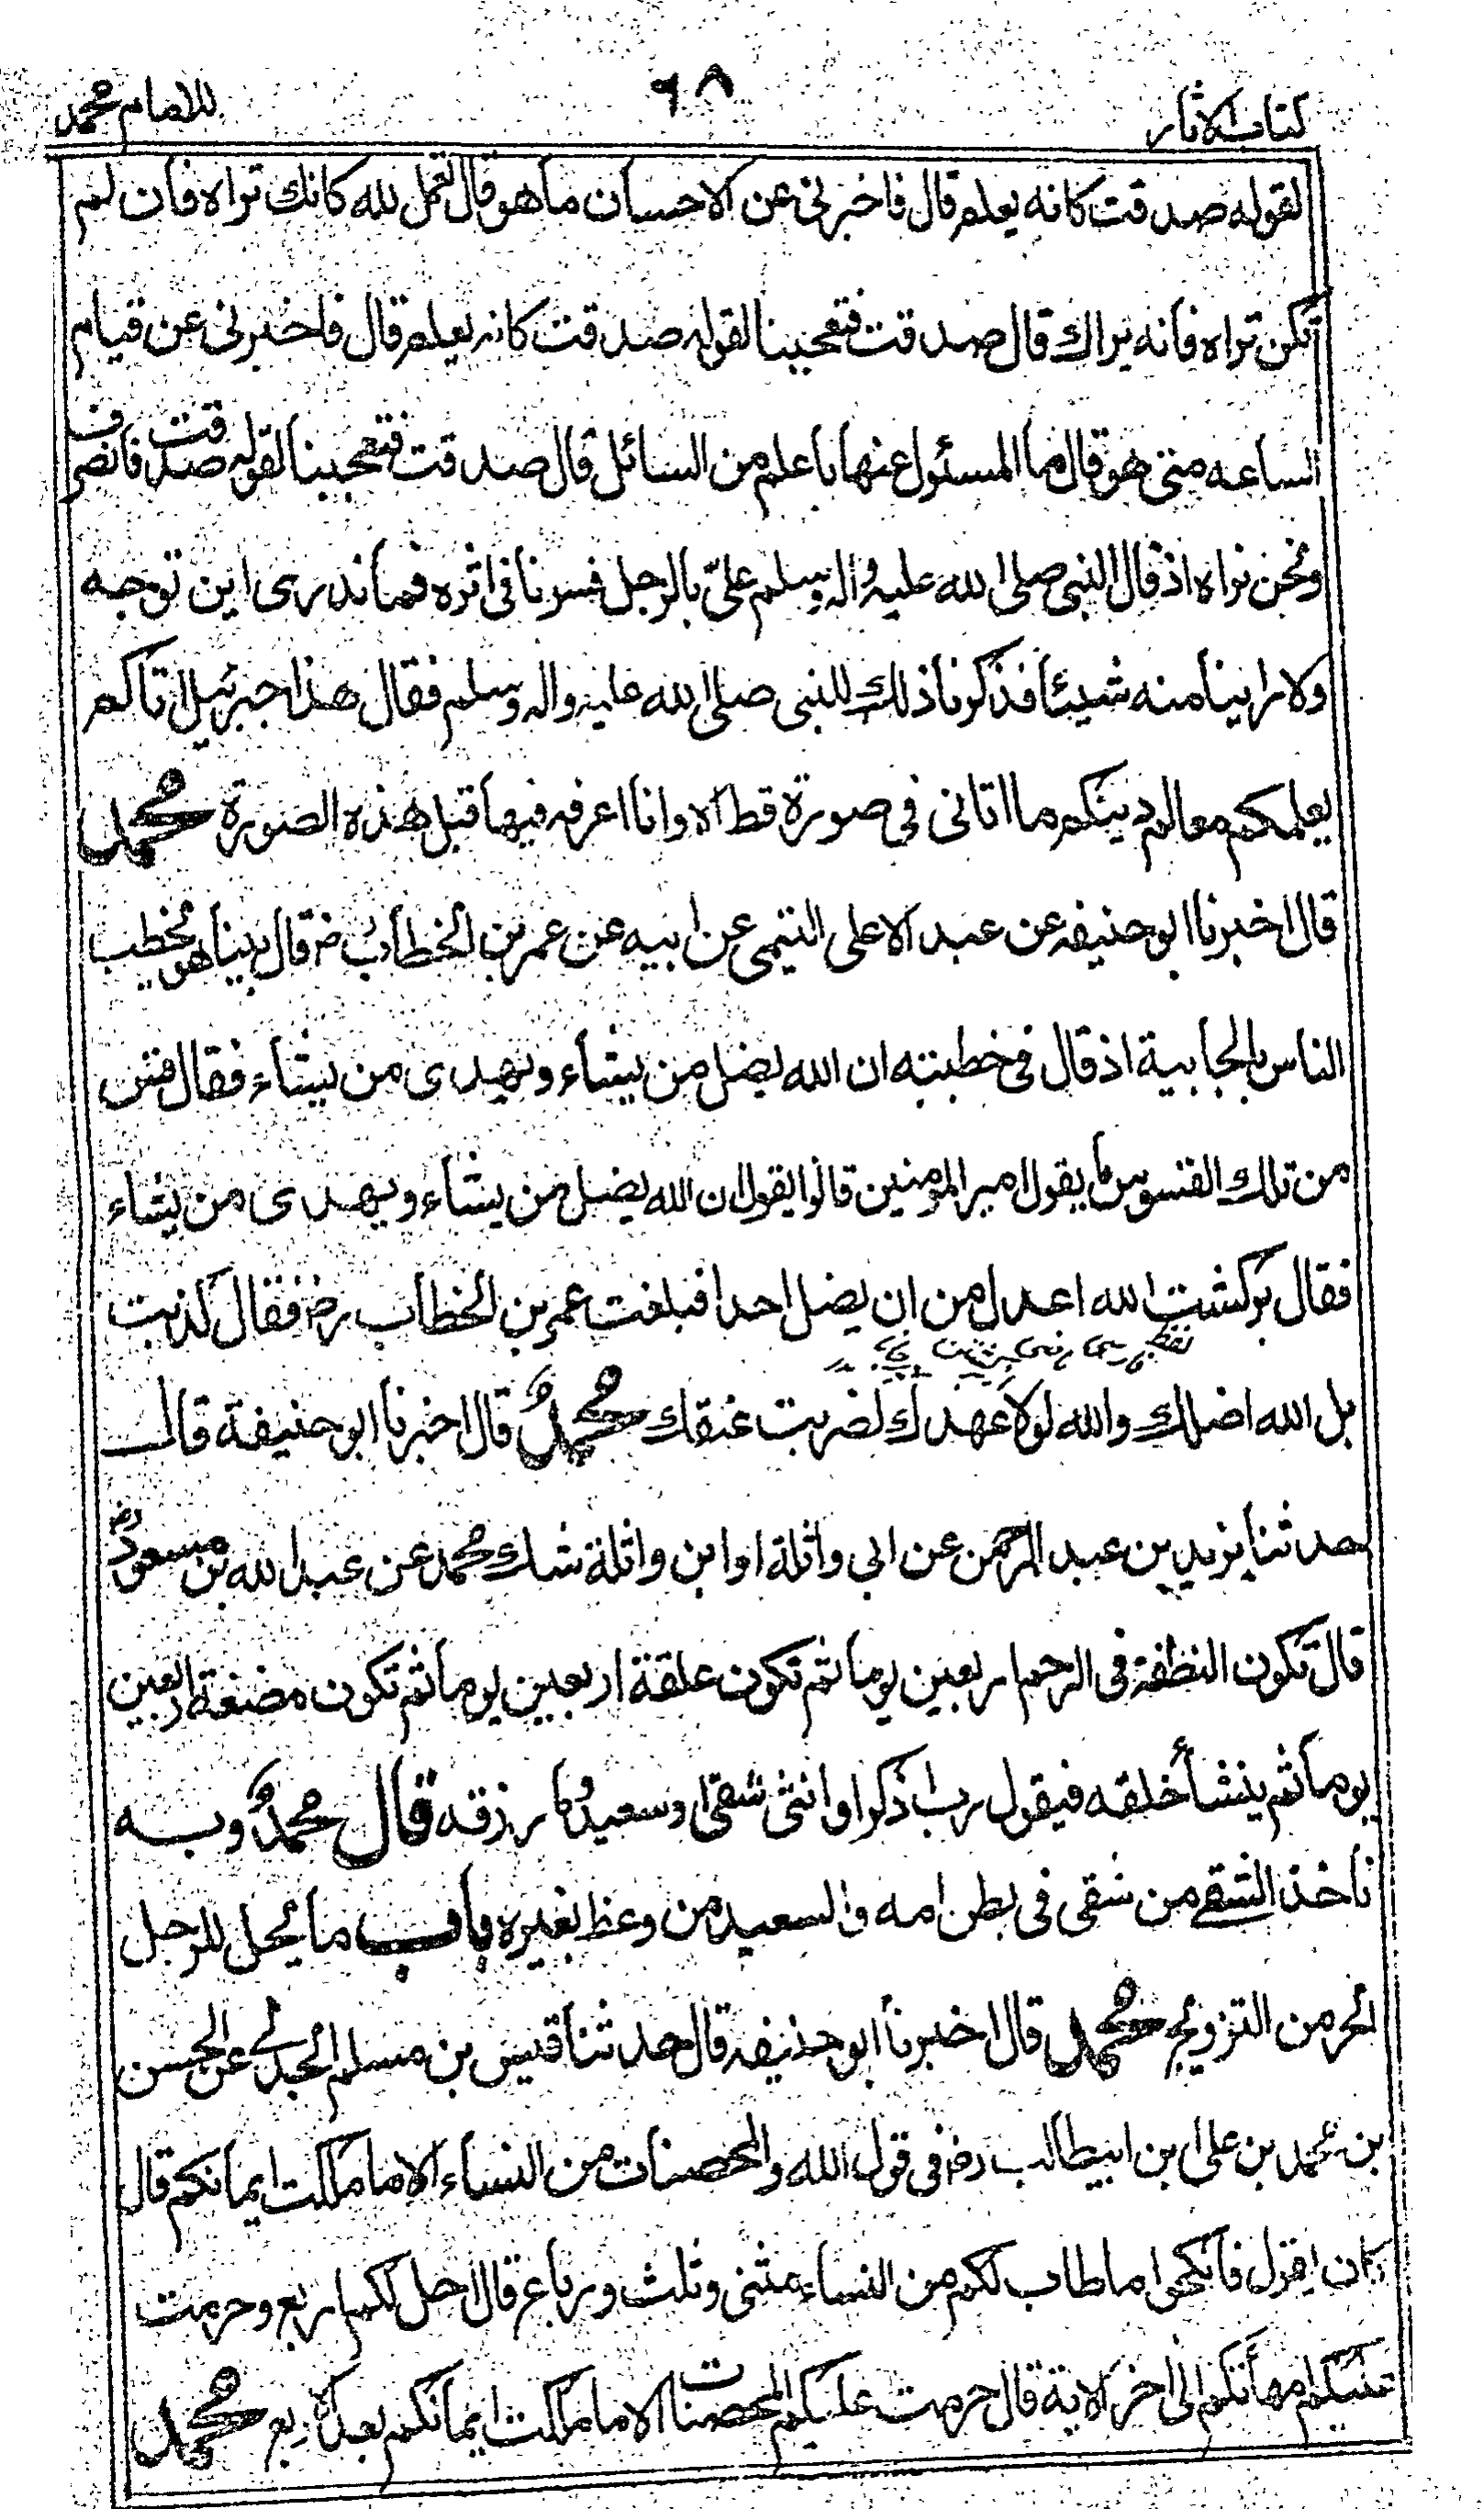 كتاب الاثار ٦٨ للامام محمد
لقوله صدقت كانه يعلم قال فاخبرنى عن الاحسان ماهو قال تعمل لله كانك تراه فان لم
تكن تراه فانه يراك قال صدقت فتعجبنا لقوله صدقت كانه يعلم قال فاخبرنى عن قيام
الساعه متى هو قال ما المسئول عنها باعلم من السائل قال صدقت فتعجبنا لقوله صدقت فانصرف
ونحن نراه اذ قال النبى صلى الله عليه واله وسلم علىّ بالرجل فسرنا فى اثره فما ندرى اين توجه
ولا راينا منه شيئا فذكرنا ذلك للنبى صلى الله عليه واله وسلم فقال هذا جبرئيل اتاكم
يعلمكم معالم دينكم ما اتانى فى صورة قط الا وانا اعرفه فيها قبل هذه الصورة محمد
قال اخبرنا ابو حنيفه عن عبد الاعلى التيمى عن ابيه عن عمر بن الخطاب رض قال بينا هو يخطب
الناس بالجابية اذ قال فى خطبته ان الله يضل من يشاء ويهدى من يشاء فقال قس
من تلك القسوس ما يقول امير المومنين قالوا يقول ان الله يضل من يشاء ويهدى من يشاء
فقال بركشت الله اعدل من ان يضل احدا فبلغت عمر بن الخطاب رض فقال كذبت
بل الله اضلك والله لولا عهدك لضربت عنقك محمد قال اخبرنا ابو حنيفة قال
حدثنا يزيد بن عبد الرحمن عن ابى واثلة او ابن واثلة شك محمد عن عبد الله بن مسعود رض
قال تكون النطفة فى الرحم اربعين يوما ثم تكون علقة اربعين يوما ثم تكون مضغة اربعين
يوما ثم ينشأ خلقه فيقول رب اذكر او انثى شقى او سعيد ما رزقه قال محمد وبه
ناخذ الشقى من شقى فى بطن امه والسعيد من وعظ بغيره باب ما يحل للرجل
الحر من التزويج محمد قال اخبرنا ابو حنيفه قال حدثنا قيس بن مسلم الجدلى عن الحسن
بن محمد بن على ابن ابيطالب رض فى قول الله والمحصنات من النساء الا ما ملكت ايمانكم قال
كان يقول فانكحوا ما طاب لكم من النساء مثنى وثلث ورباع قال احل لكم اربع وحرمت
عليكم امهاتكم الى اخر الاية قال حرمت عليكم المحصنات الا ما ملكت ايمانكم بعد الاربع محمد